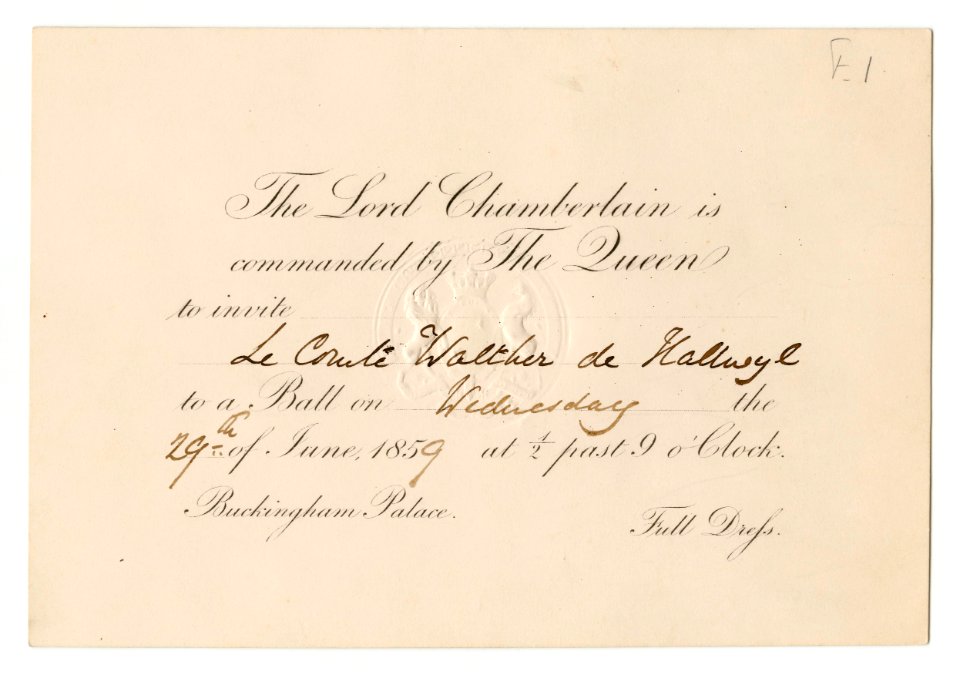 F. 1
The Lord Chamberlain is
commanded by The Queen
to invite
Le Comte Walther de Hallwyl
to a Ball on Wednesday the
29th of June, 1859 at ½ past 9 o'Clock.
Buckingham Palace.
Full Dreſs.